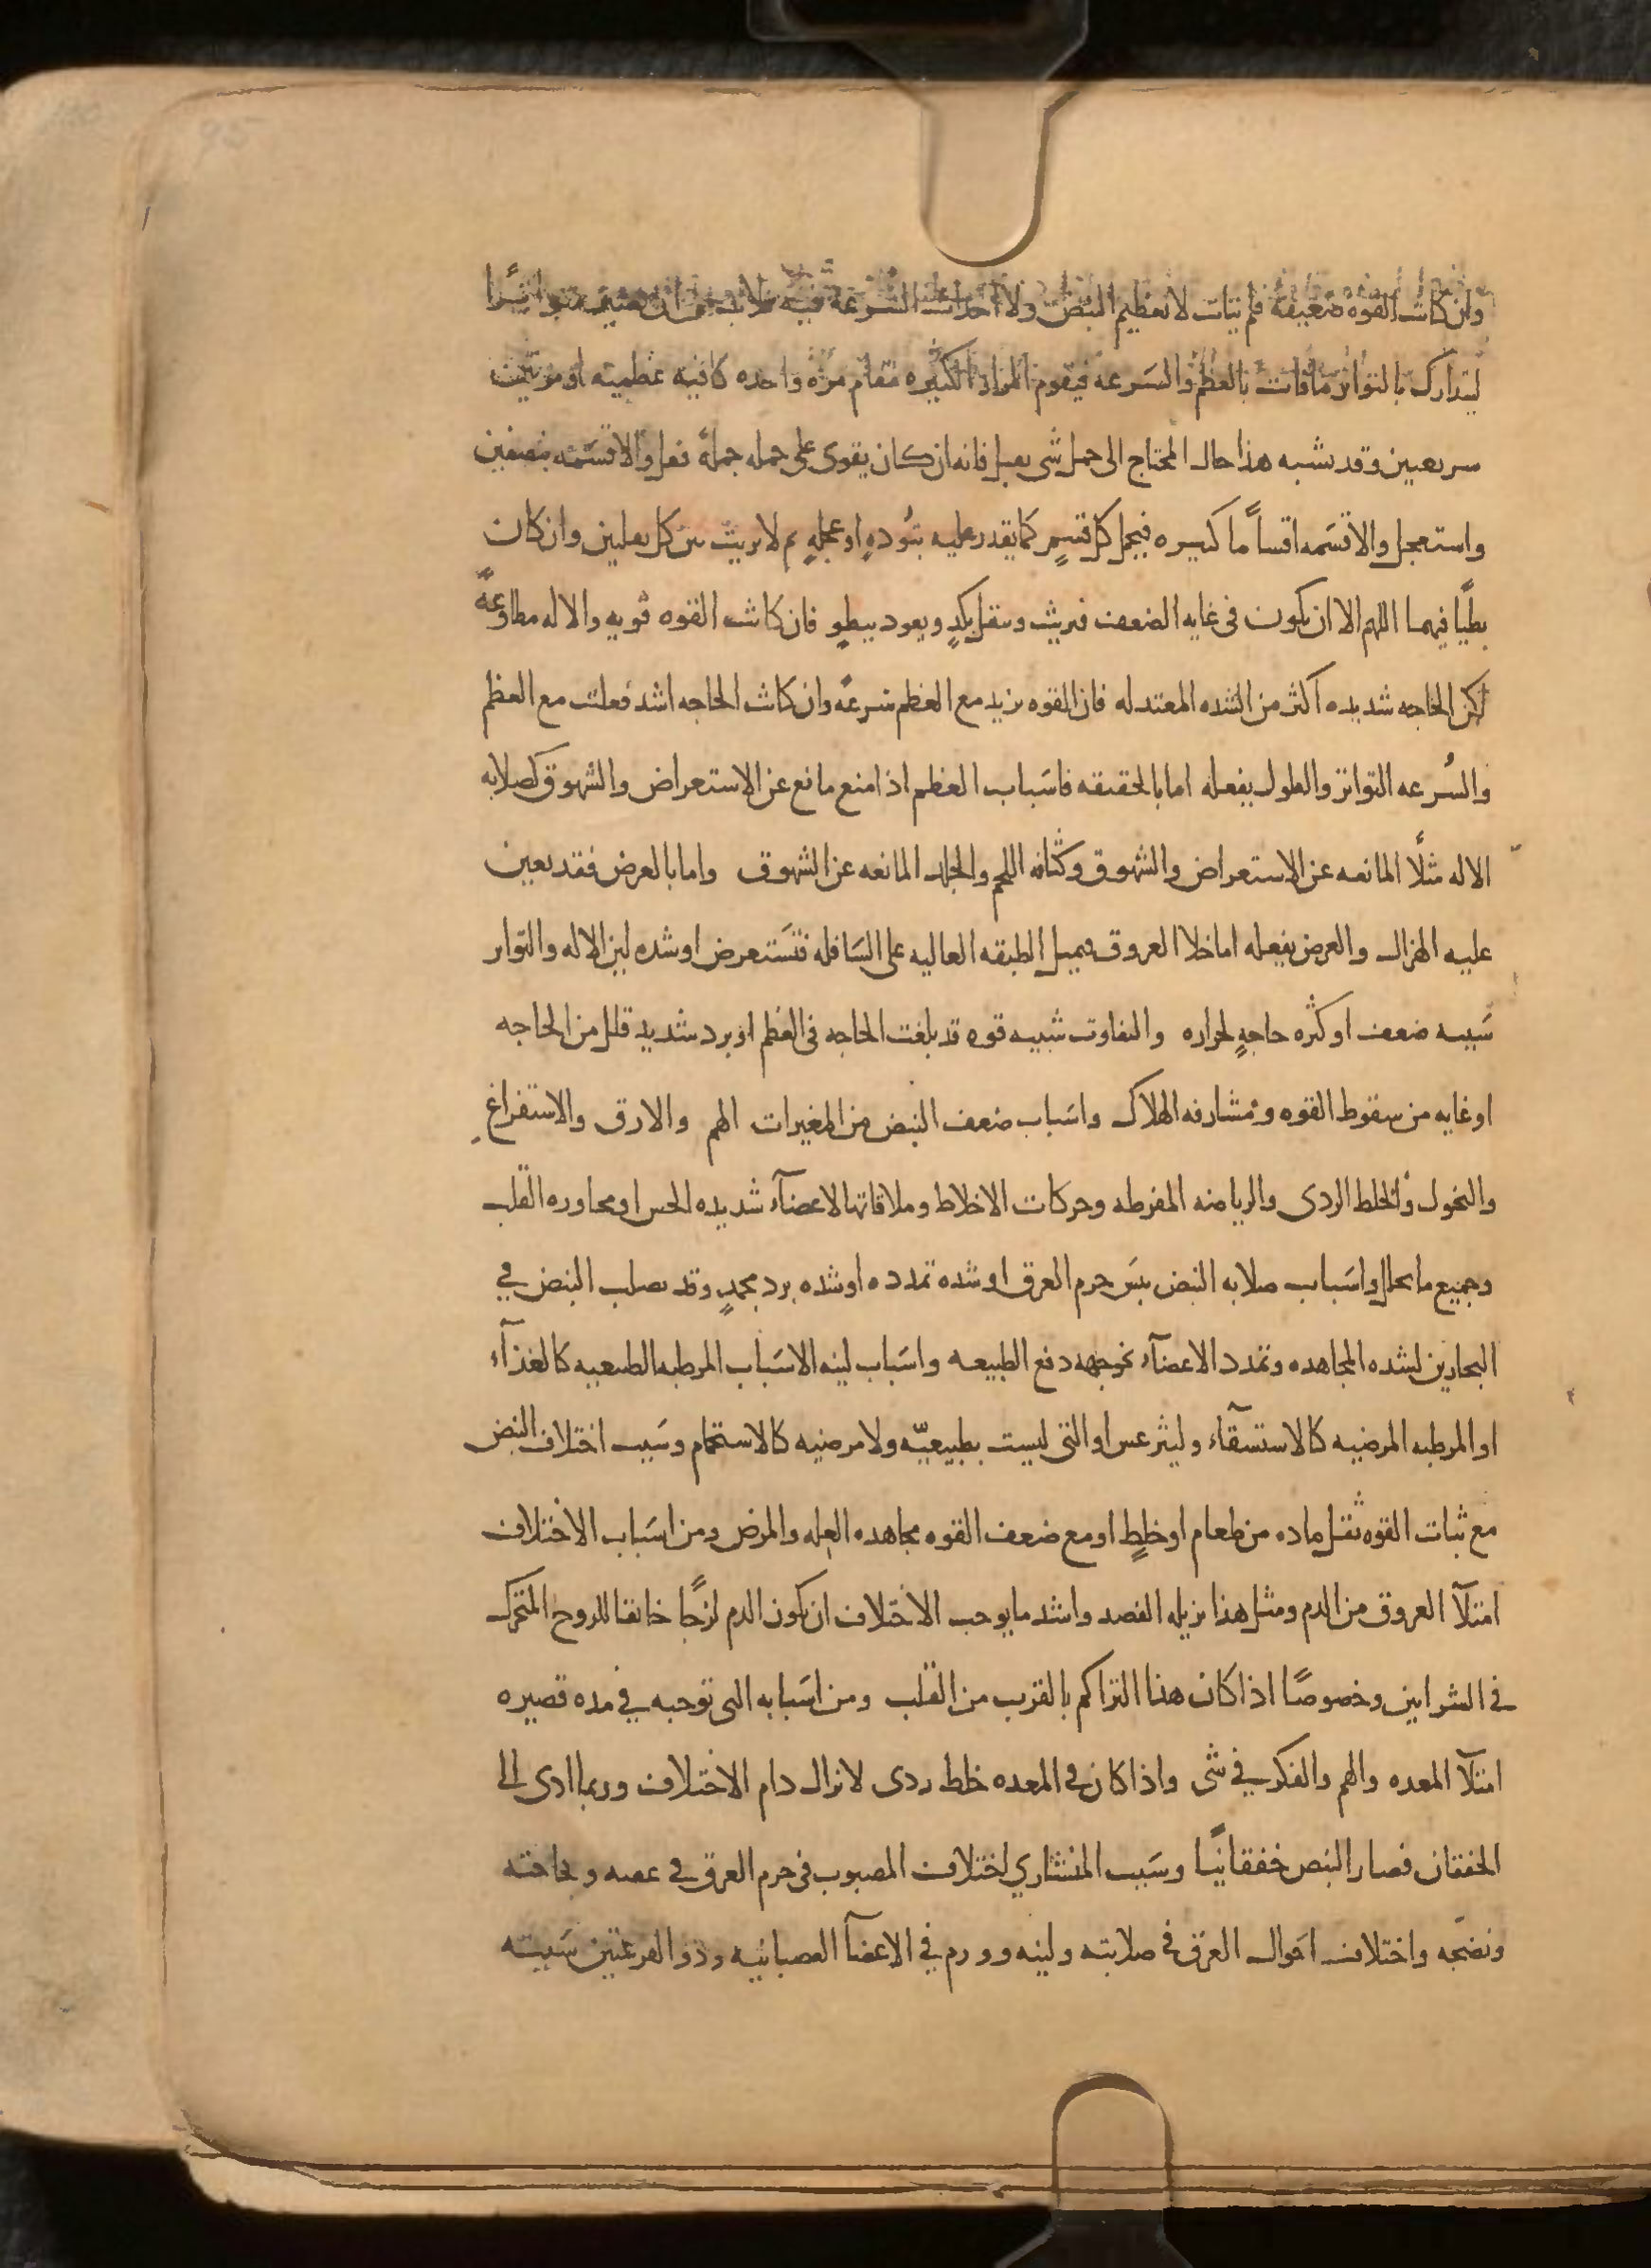 وان كانت القوه ضعيفة فلم تيات لا تعظيم النبض ولا احداث السرعة فيه فلا بد من ان يصير متواترًا
ليتدارك بالتواتر ما فات بالعظم والسَرعه فيقوم المرار الكثيره مقام مرّه واحده كافيه عظيمه او مرتين
سريعين وقد يشبه هذا حال المحتاج الى حمل شى ثقيل فانه ان كان يقوى على حمله جملةً فعل والا قسَمه بنصفين
واستعجل والا قسَمه اقساماً كثيره فيحمل كل قسمٍ كما يقدر عليه بتُودهٍ او عجلهٍ ثم لا يريث بين كل نقلين وان كان
بطيًا فيهما اللهم الا ان يكون فى غايه الضعف فيريث وينقل بكدٍ ويعود ببطوٍ فان كانت القوه قويه والاله مطاوعةً
لكن الحاجه شديده اكثر من الشده المعتدله فان القوه يزيد مع العظم سرعةً وان كانت الحاجه اشد فعلت مع العظم
والسُرعه التواتر والطول يفعله اما بالحقيقه فاسَباب العظم اذا منع مانع عن الاستعراض والشهوق كصلابه
الاله مثلًا المانعه عن الاستعراض والشهوق وكثافه اللحم والجلد المانعه عن الشهوق واما بالعرض فقد يعين
عليه الهزال والعرض يفعله اما خلا العروق فيميل الطبقه العاليه على السَافله فتَستعرض او شده لين الاله والتواتر
سَببه ضعف او كثره حاجهٍ لحراره والتفاوت سببه قوه قد بلغت الحاجه فى العظم او برد شديد قلل من الحاجه
او غايه من سقوط القوه ومُشارفه الهلاك واسَباب ضعف النبض من المغيرات الهم والارق والاستفراغ
والنحول والخلط الردى والرياضه المفرطه وحركات الاخلاط وملاقاتها لاعضآء شديده الحس او مجاوره القلب
وجميع ما يحلل واسَباب صلابه النبض يبسَ جرم العرق او شده تمدده او شده برد مجمدٍ وقد يصلب النبض في
البحارين لشده المجاهده وتمدد الاعضآء نحو جهه دفع الطبيعه واسَباب لينه الاسَباب المرطبه الطبيعيه كالغذآء
او المرطبه المرضيه كالاستسقآء وليثرغس او التى ليست بطبيعيّه ولا مرضيه كالاستحمام وسَبب اختلاف النبض
مع ثبات القوه ثقل ماده من طعام او خلطٍ او مع ضعف القوه مجاهده العله والمرض ومن اسَباب الاختلاف
امتلآ العروق من الدم ومثل هذا يزيله الفصد واشد ما يوجب الاختلاف ان يكون الدم لزجًا خانقا للروح المتحرك
في الشرايين وخصوصًا اذا كان هذا التراكم بالقرب من القلب ومن اسَبابه التى توجبه في مده قصيره
امتلآ المعده والهم والفكر في شى واذا كان في المعده خلط ردى لا يزال دام الاختلاف وربما ادى الى
الخفقان فصار النبض خفقانيًا وسَبب المنشاري اختلاف المصبوب فى جرم العرق في عفنه وفجاجته
ونضجه واختلاف احَوال العرق فى صلابته ولينه وورم في الاعضآ العصبانيه وذو القرعتين سَببه